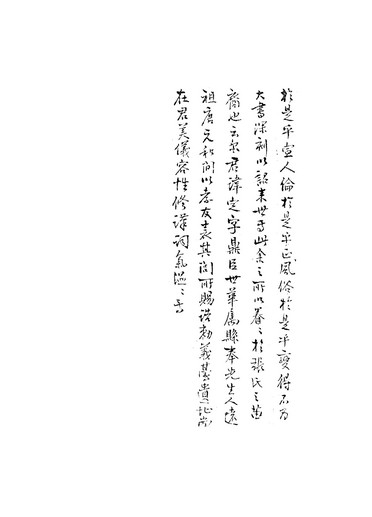 於是乎宣人倫於是乎正風俗於是乎變得不為
大書深刻以詔來世乎此余之所以眷〻於張氏之
裔也云尔君諱定字鼎臣世華原縣奉先生人遠
祖唐元和間以孝友表其閭所賜誥勅義
在君美儀容性修謹詞氣溫〻